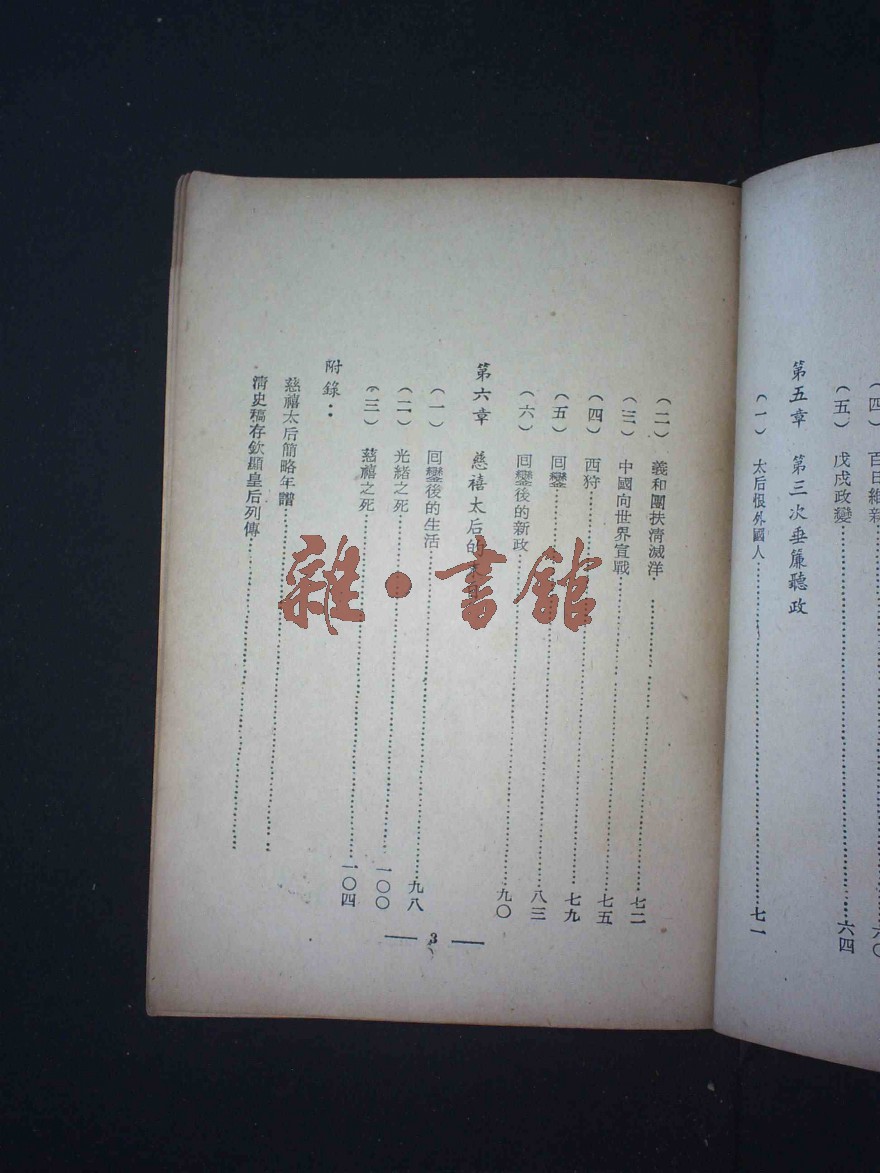 （四） 百日維新……六〇
（五） 戊戌政變……六四
第五章 第三次垂簾聽政
（一） 太后恨外國人……七一
（二） 義和團扶淸滅洋……七二
（三） 中國向世界宣戰……七五
（四） 西狩……七九
（五） 囘鑾……八三
（六） 囘鑾後的新政……九〇
第六章 慈禧太后的
（一） 囘鑾後的生活……九八
（二） 光緒之死……一〇〇
（三） 慈禧之死……一〇四
附錄：
慈禧太后簡略年譜……
淸史稿孝欽顯皇后列傳……
— 3 —
雜·書館